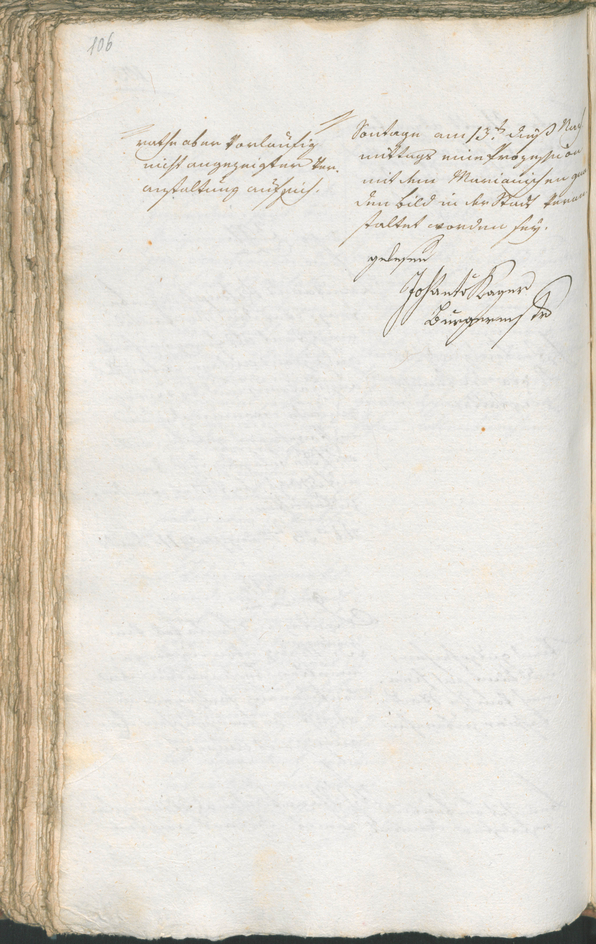 106
raths aber vorläufig
nicht angezeigter Ver-
anstaltung aufsich.
Sontags am 13.t dieß Nach
mittags eine Prozession
mit dem Marianischen gna
den Bild in der Stadt veran
staltet worden sey.
gelesen
Johant
Burgermst